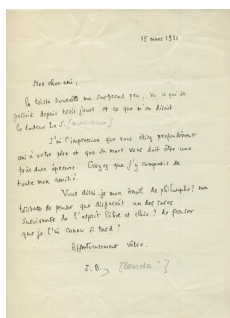 15 mars 19
Mon cher ami,
La triste nouvelle me surprend peu, vu ce qui se
passait depuis trois jours et ce que m'en disait
le docteur Le S.
J'ai l'impression que vous étiez profondément
uni à votre père et que sa mort vous doit être une
très dure épreuve. Croyez que j'y compatis de
toute mon amitié.
Vous dirai-je mon deuil de philosophe? ma
tristesse de penser que disparaît un des rares
survivants de l'esprit libre et clair? de penser
que je l'ai connu si tard?
Affectueusement vôtre.
J. B. [Benda?]